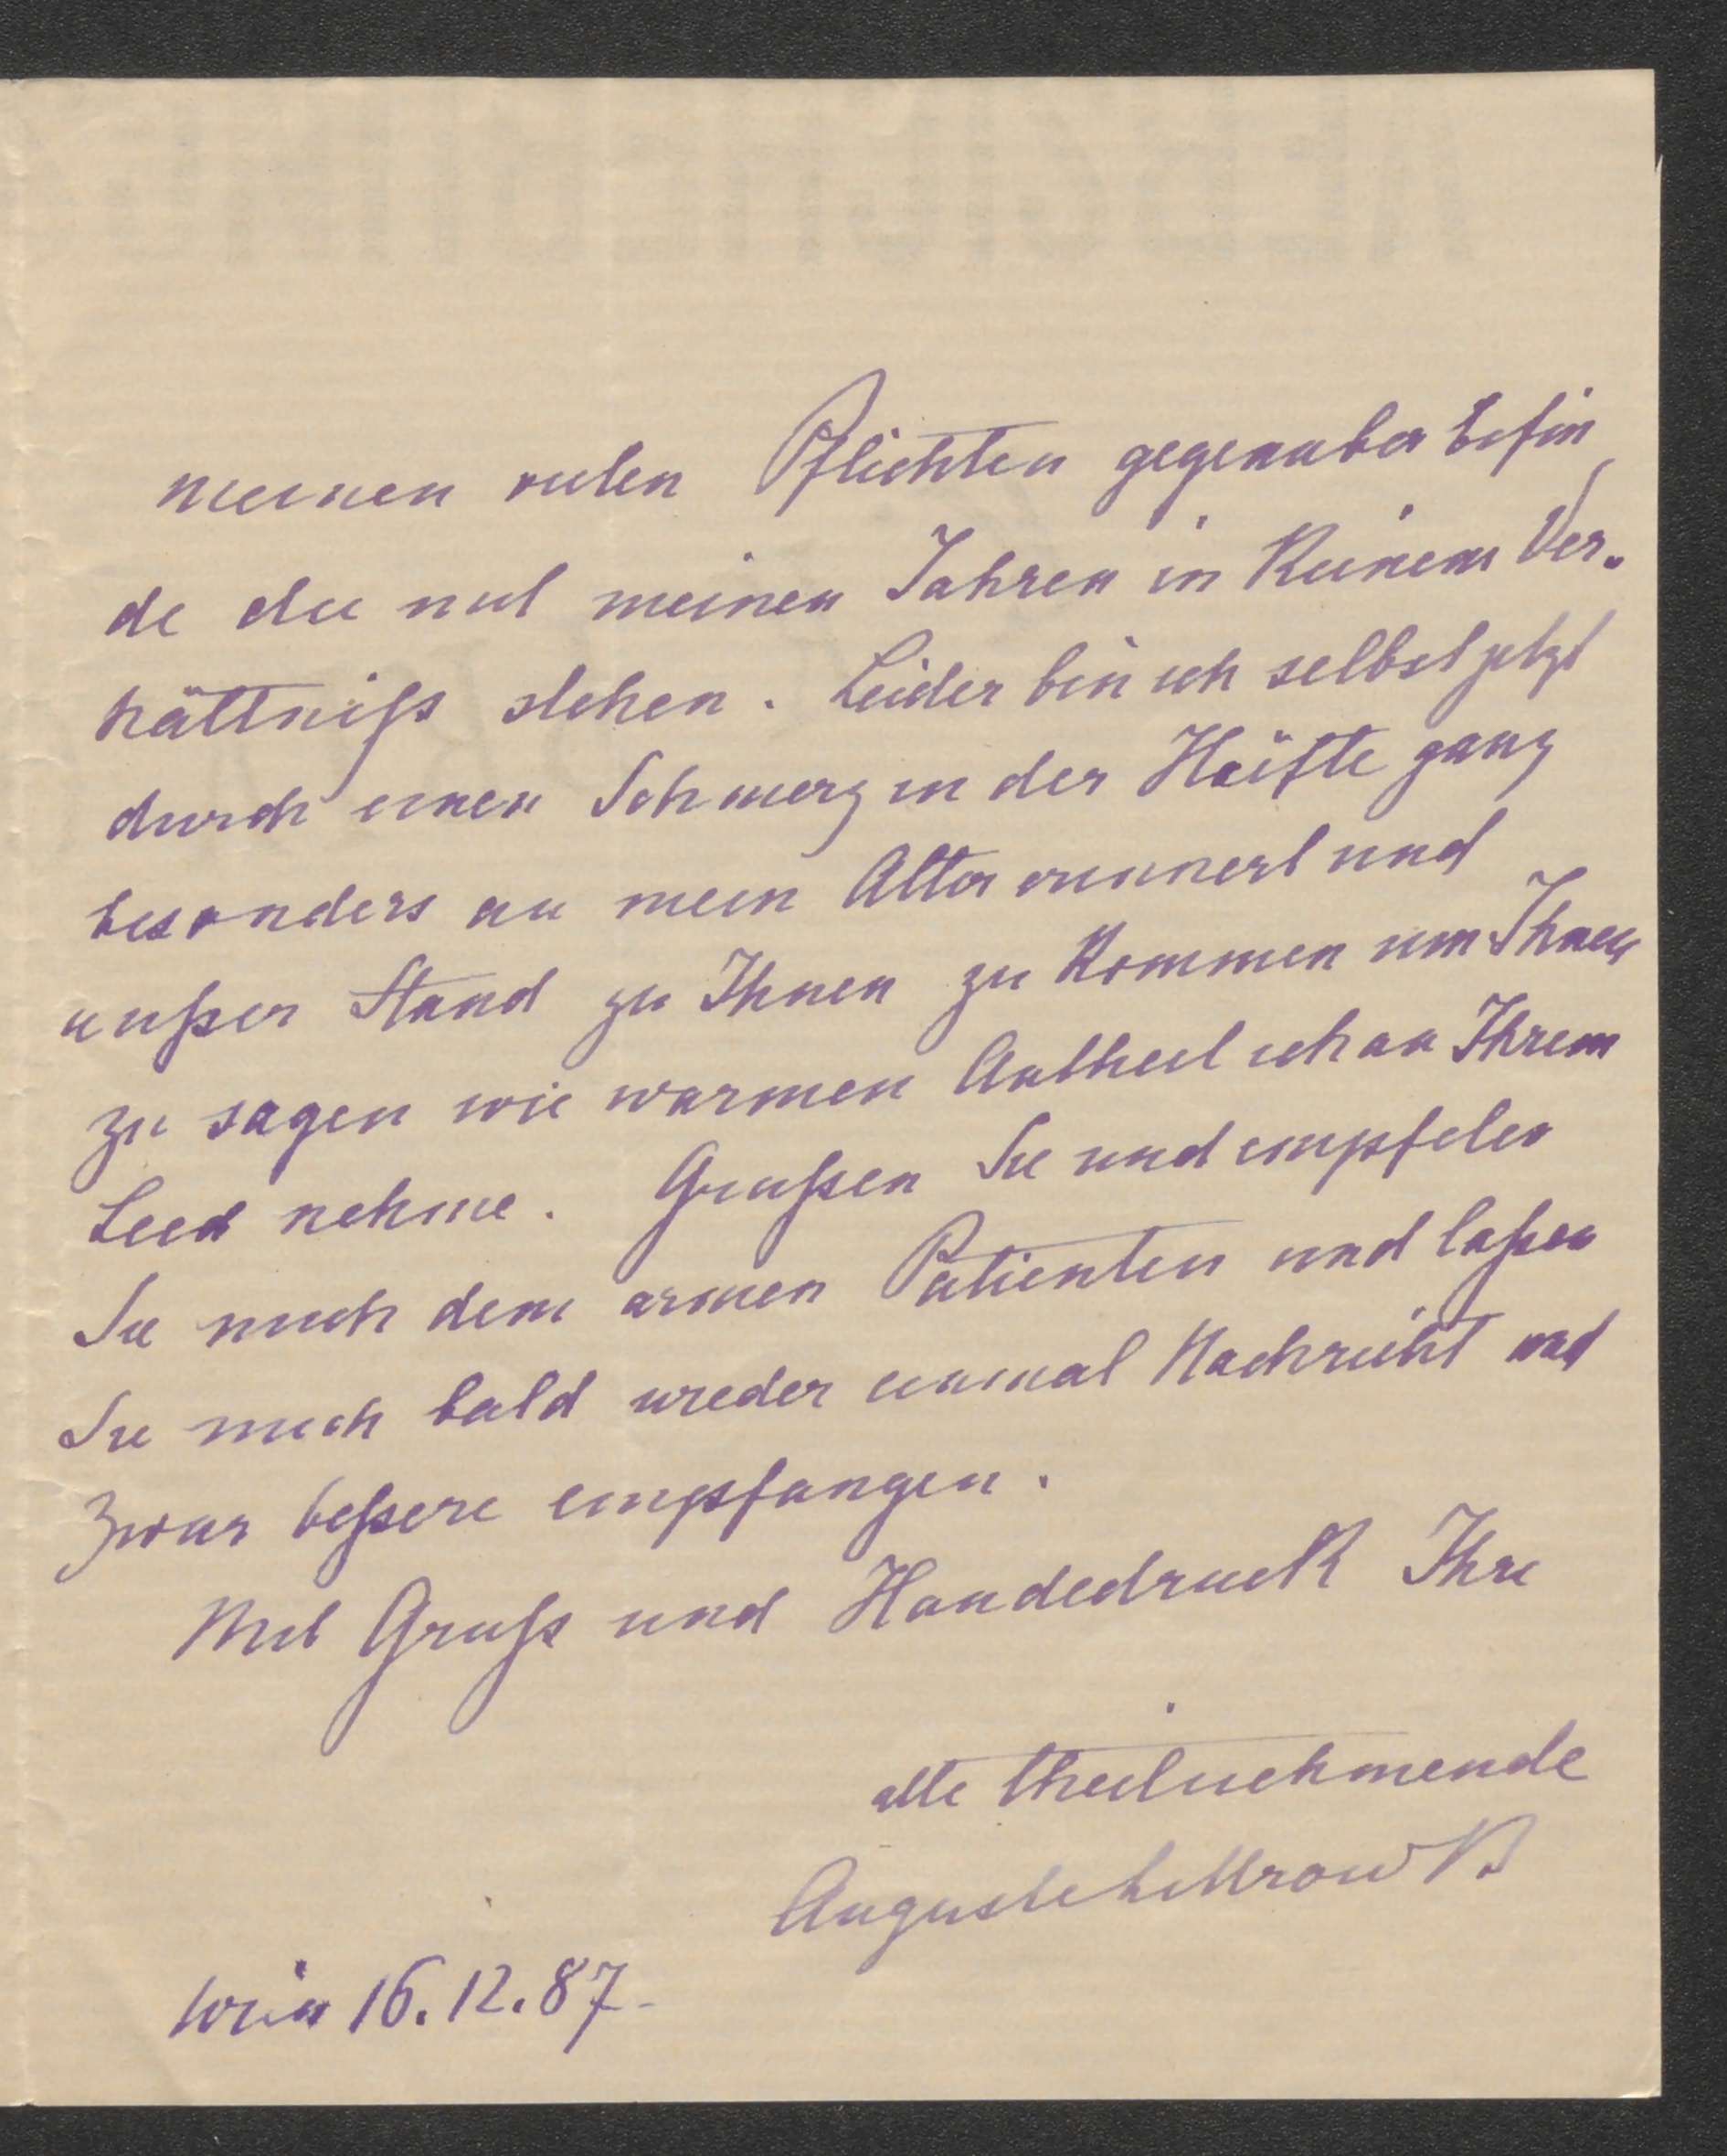 meinen vielen Pflichten gegenuber befin
de die mit meinen Jahren in Keinem Ver.
hältniß stehen. Leider bin ich selbst jetzt
durch einen Schmerz in der Hüfte ganz
besonders an mein Alter erinnert und
außer Stand zu Ihnen zu Kommen um Ihnen
zu sagen wie warmen Antheil ich an Ihrem
Leid nehme. Grußen Sie und empfelen
Sie mich dem armen Patienten und laßen
Sie mich bald wieder einmal Nachricht und
zwar beßere empfangen.
Mit Gruß und Händedruck Ihre
alte theilnehmende
Auguste Littrow B
Wien 16.12.87.